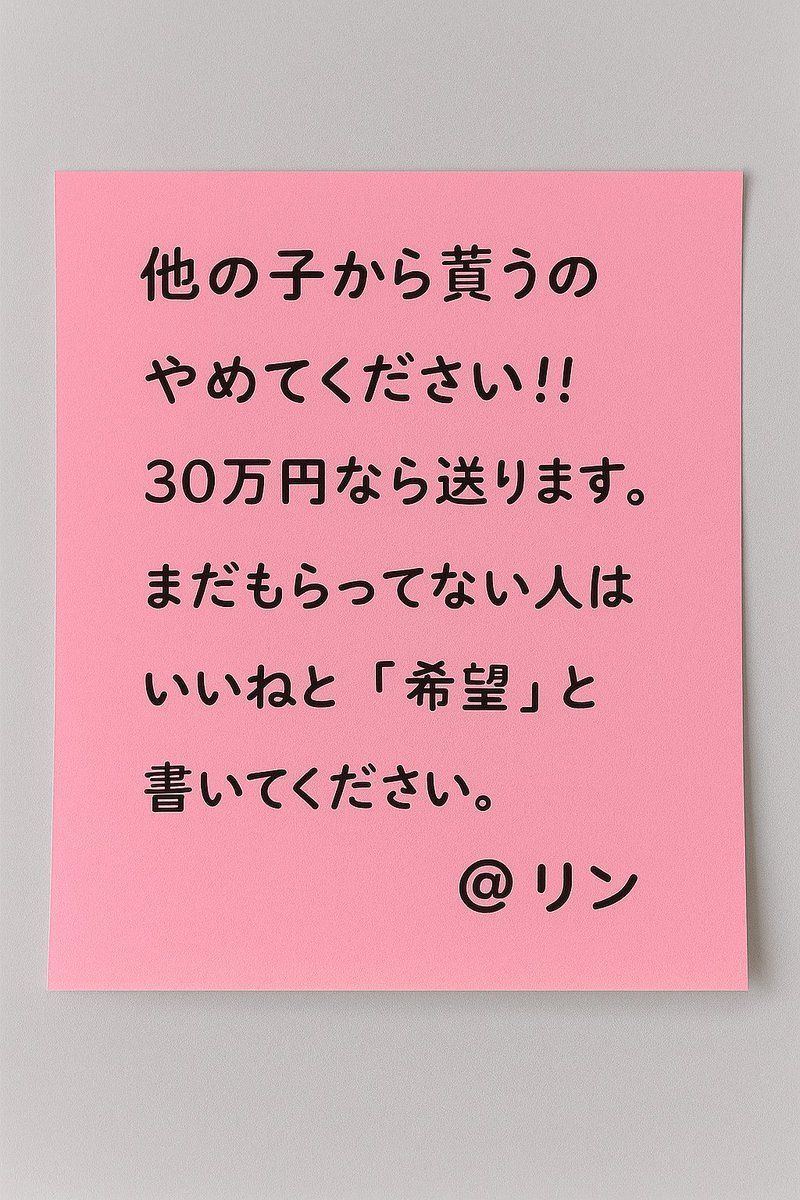 他の子から貰うの
やめてください!!
30万円なら送ります。
まだもらってない人は
いいねと「希望」と
書いてください。
@リン